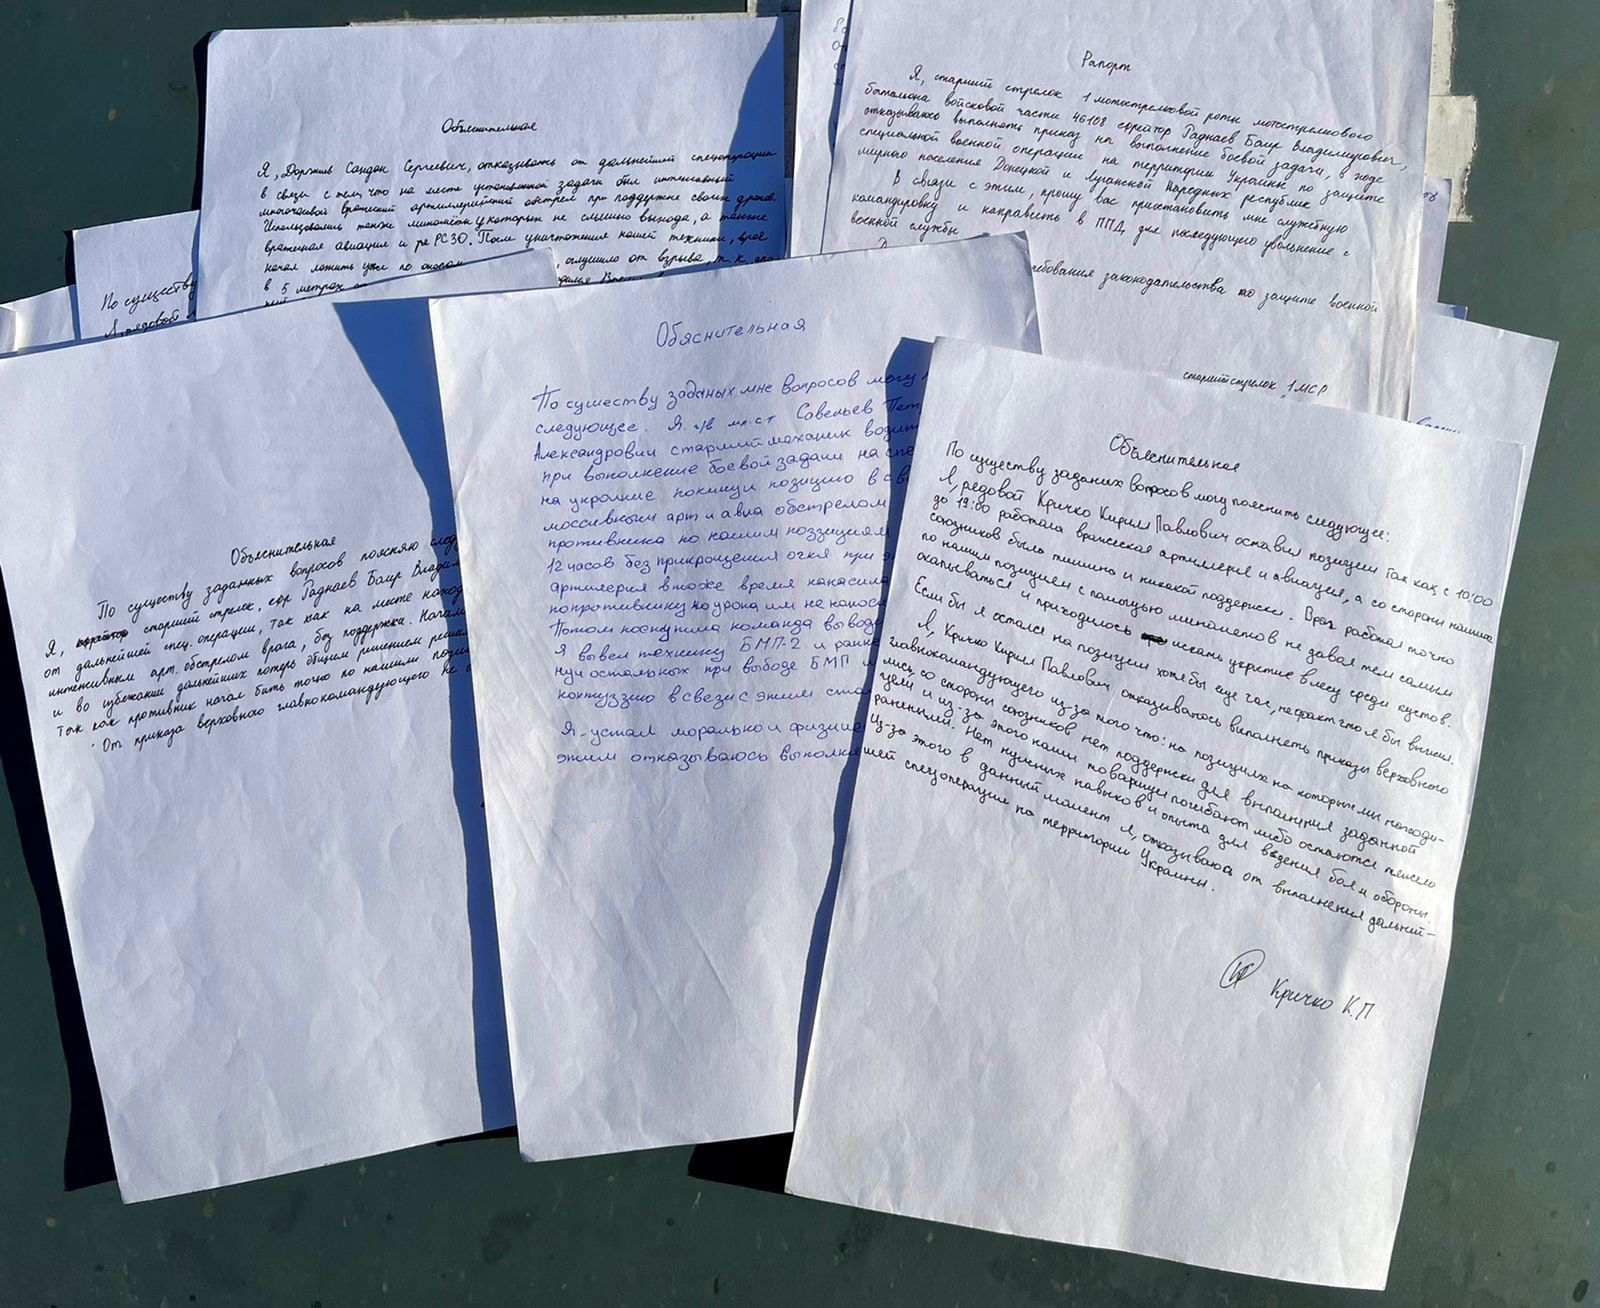 Объяснительная
Я, Доржиев Сандан Сергеевич, отказываюсь от дальнейшей спецоперации
в связи с тем, что на месте установленной задачи был интенсивный
многочасовой вражеский артиллерийский обстрел при поддержке своих дронов.
Использовались также миномёты у которых не слышно выхода, а также
вражеская авиация и РСЗО. После уничтожения нашей техники, враг
начал ложить уже по окопам оглушило от взрыва, т.к.
в 5 метрах
Рапорт
Я, старший стрелок 1 мотострелковой роты мотострелкового
батальона войсковой части 46108 ефрейтор Раднаев Баир Владимирович,
отказываюсь выполнять приказ на выполнение боевой задачи, в ходе
специальной военной операции на территории Украины по защите
мирного населения Донецкой и Луганской Народных республик
В связи с этим, прошу вас приостановить мне служебную
командировку и направить в ППД, для последующего увольнения с
военной службы
требования законодательства по защите военной
старший стрелок 1 МСР
По существу
Я, рядовой
Объяснительная
По существу заданных вопросов поясняю
Я, старший стрелок, ефр Раднаев Баир
от дальнейшей спец. операции, так как на месте
интенсивным арт. обстрелом врага, без поддержки.
и во избежании дальнейших потерь общим решением
так как противник начал бить точно по нашим
От приказа верховного главнокомандующего не
Обяснительная
По существу заданых мне вопросов могу
следующее. Я г/в мл.с-т Савельев
Александрович старший механик
при выполнение боевой задачи на
на украине покинул позицию в
моссивным арт и авиа обстрелом
противника по нашим поззициям
12 часов без прикрощения огня при
артилерия в тоже время
по противнику но урона им не
Потом поступила команда
Я вывел технику БМП-2 и
остальных при выводе БМП
контуззию в свези с этим
Я устал морально и
этим отказываюсь
Объяснительная
По существу заданих вопросов могу пояснить следующее:
Я, редовой Кричко Кирилл Павлович оставил позиции так как с 10:00
до 19:00 работала вражеская артиллерия и авиация, а со стороны наших
союзников было тишина и никакой поддержки. Враг работал точно
по нашим позициям с помощью миномётов не давая тем самым
окапываться и приходилось искать укрытие в лесу среди кустов.
Если бы я остался на позиции хотя бы еще час, не факт что я бы выжил.
Я, Кричко Кирилл Павлович отказываюсь выполнять приказы верховного
главнокомандующего из-за того что: на позициях на которых мы находи-
лись, со стороны союзников нет поддержки для выполнения заданной
цели и из-за этого наши товарищи погибают либо остаются тяжело
ранеными. Нет нужных навыков и опыта для ведения боя и обороны.
Из-за этого в данный момент я, отказываюсь от выполнения дальней-
шей спецоперации на территории Украины.
Кричко К.П